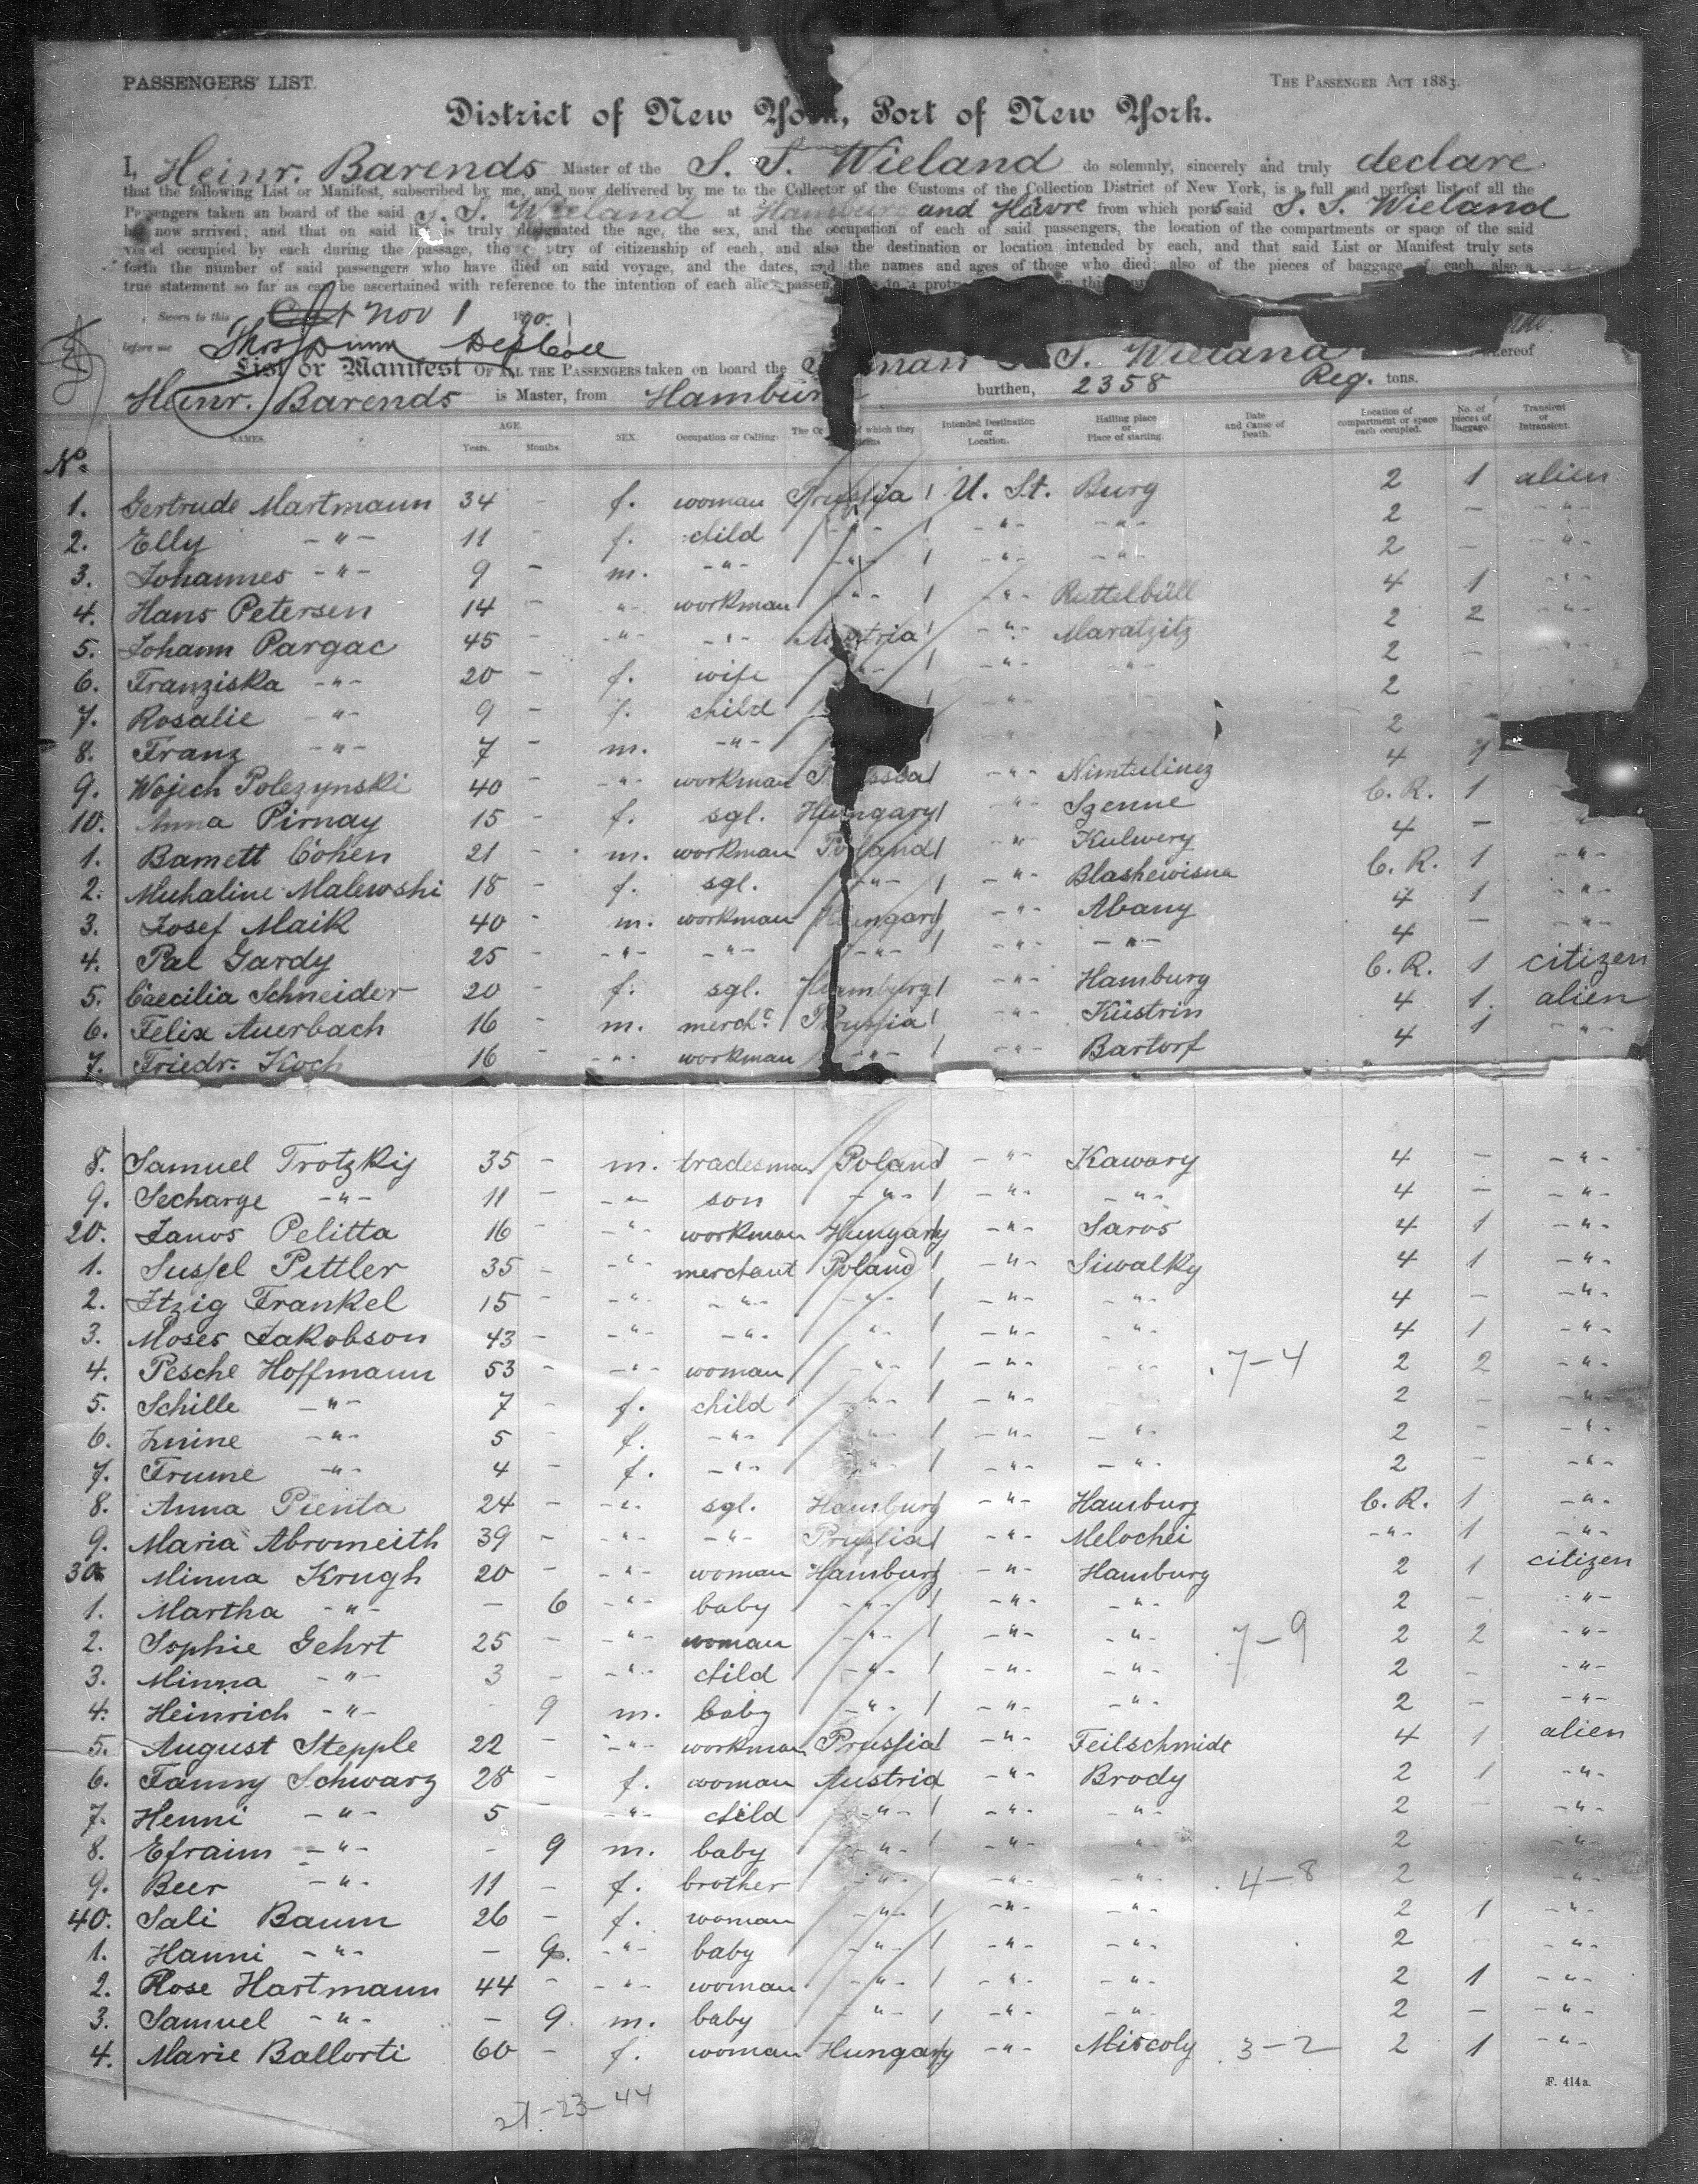 PASSENGERS' LIST.
THE PASSENGER ACT 1883.
District of New York, Port of New York.
I, Heinr. Barends Master of the S. S. Wieland do solemnly, sincerely and truly declare
that the following List or Manifest, subscribed by me, and now delivered by me to the Collector of the Customs of the Collection District of New York, is a full and perfect list of all the
Passengers taken on board of the said S. S. Wieland at Hamburg and Hâvre from which ports said S. S. Wieland
has now arrived; and that on said list is truly designated the age, the sex, and the occupation of each of said passengers, the location of the compartments or space of the said
vessel occupied by each during the passage, the country of citizenship of each, and also the destination or location intended by each, and that said List or Manifest truly sets
forth the number of said passengers who have died on said voyage, and the dates, and the names and ages of those who died; also of the pieces of baggage of each, also a
true statement so far as can be ascertained with reference to the intention of each alien passen
Sworn to this Nov 1 1890.
before me
List or Manifest OF ALL THE PASSENGERS taken on board the man S. S. Wieland hereof
Heinr. Barends is Master, from Hamburg burthen, 2358 Reg. tons.
No. NAMES. AGE. Years. Months. SEX. Occupation or Calling. The of which they Intended Destination or Location. Hailing place or Place of starting. Date and Cause of Death. Location of compartment or space each occupied. No. of pieces of Baggage. Transient or Intransient.
1. Gertrude Martmann 34 - f. woman Prussia U. St. Burg 2 1 alien
2. Elly -"- 11 - f. child -"- -"- -"- 2 - -"-
3. Johannes -"- 9 - m. -"- -"- -"- -"- 2 - -"-
4. Hans Petersen 14 - -"- workman -"- -"- Ruttelbüll 4 1 -"-
5. Johann Pargac 45 - -"- -"- Austria -"- Maratzitz 2 2 -"-
6. Franziska -"- 20 - f. wife -"- -"- -"- 2 -
7. Rosalie -"- 9 - f. child -"- 2 -
8. Franz -"- 7 - m. -"- 2 -
9. Wojech Polezynski 40 - -"- workman Prussia -"- Nimtulinez 4 1
10. Anna Pirnay 15 - f. sgl. Hungary -"- Szenne C. R. 1
1. Barnett Cohen 21 - m. workman Poland -"- Kulwery 4 - -"-
2. Muhaline Malewski 18 - f. sgl. -"- -"- Blashewisna C. R. 1 -"-
3. Josef Maik 40 - m. workman Hungary -"- Abany 4 1 -"-
4. Pal Gardy 25 - -"- -"- -"- -"- -"- 4 - -"-
5. Caecilia Schneider 20 - f. sgl. Hamburg -"- Hamburg C. R. 1 citizen
6. Felix Auerbach 16 - m. merch. Prussia -"- Küstrin 4 1 alien
7. Friedr. Koch 16 - -"- workman -"- -"- Bartorf 4 1 -"-
8. Samuel Trotzkij 35 - m. tradesman Poland -"- Kawary 4 - -"-
9. Secharge -"- 11 - -"- son -"- -"- -"- 4 - -"-
20. Janos Pelitta 16 - -"- workman Hungary -"- Saros 4 1 -"-
1. Sussel Pettler 35 - -"- merchant Poland -"- Siwalky 4 1 -"-
2. Itzig Frankel 15 - -"- -"- -"- -"- -"- 4 - -"-
3. Moses Jakobson 43 - -"- -"- -"- -"- -"- 4 1 -"-
4. Pesche Hoffmann 53 - -"- woman -"- -"- -"- 7-4 2 2 -"-
5. Schille -"- 7 - f. child -"- -"- 2 - -"-
6. -"- 5 - f. -"- -"- -"- -"- 2 - -"-
7. Frume -"- 4 - f. -"- -"- -"- -"- 2 - -"-
8. Anna Pienta 24 - -"- sgl. Hamburg -"- Hamburg C. R. 1 -"-
9. Maria Abromeith 39 - -"- -"- Prussia -"- Melochei -"- 1 -"-
30. Minna Krugh 20 - -"- woman Hamburg -"- Hamburg 2 1 citizen
1. Martha -"- - 6 -"- baby -"- -"- -"- 2 - -"-
2. Sophie Gehrt 25 - -"- woman -"- -"- -"- 7-9 2 2 -"-
3. Minna -"- 3 - -"- child -"- -"- -"- 2 - -"-
4. Heinrich -"- - 9 m. baby -"- -"- -"- 2 - -"-
5. August Stepple 22 - -"- workman Prussia -"- Feilschmidt 4 1 alien
6. Fanny Schwarz 28 - f. woman Austria -"- Brody 2 1 -"-
7. Henni -"- 5 - -"- child -"- -"- -"- 2 - -"-
8. Efraim -"- - 9 m. baby -"- -"- -"- 2 - -"-
9. Beer -"- 11 - f. brother -"- -"- -"- 4-8 2 -"-
40. Sali Baum 26 - f. woman -"- -"- -"- 2 1 -"-
1. Hanni -"- - 9. -"- baby -"- -"- -"- 2 - -"-
2. Rose Hartmann 44 - -"- woman -"- -"- -"- 2 1 -"-
3. Samuel -"- - 9. m. baby -"- -"- -"- 2 - -"-
4. Marie Ballorti 60 - f. woman Hungary -"- Miscoly 3-2 2 1 -"-
F. 414a.
21-23-44